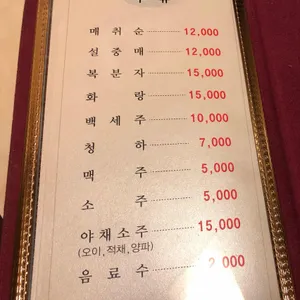 매취순 12,000
설중매 12,000
복분자 15,000
화랑 15,000
백세주 10,000
청하 7,000
맥주 5,000
소주 5,000
야채소주 15,000
(오이,적채,양파)
음료수 2,000